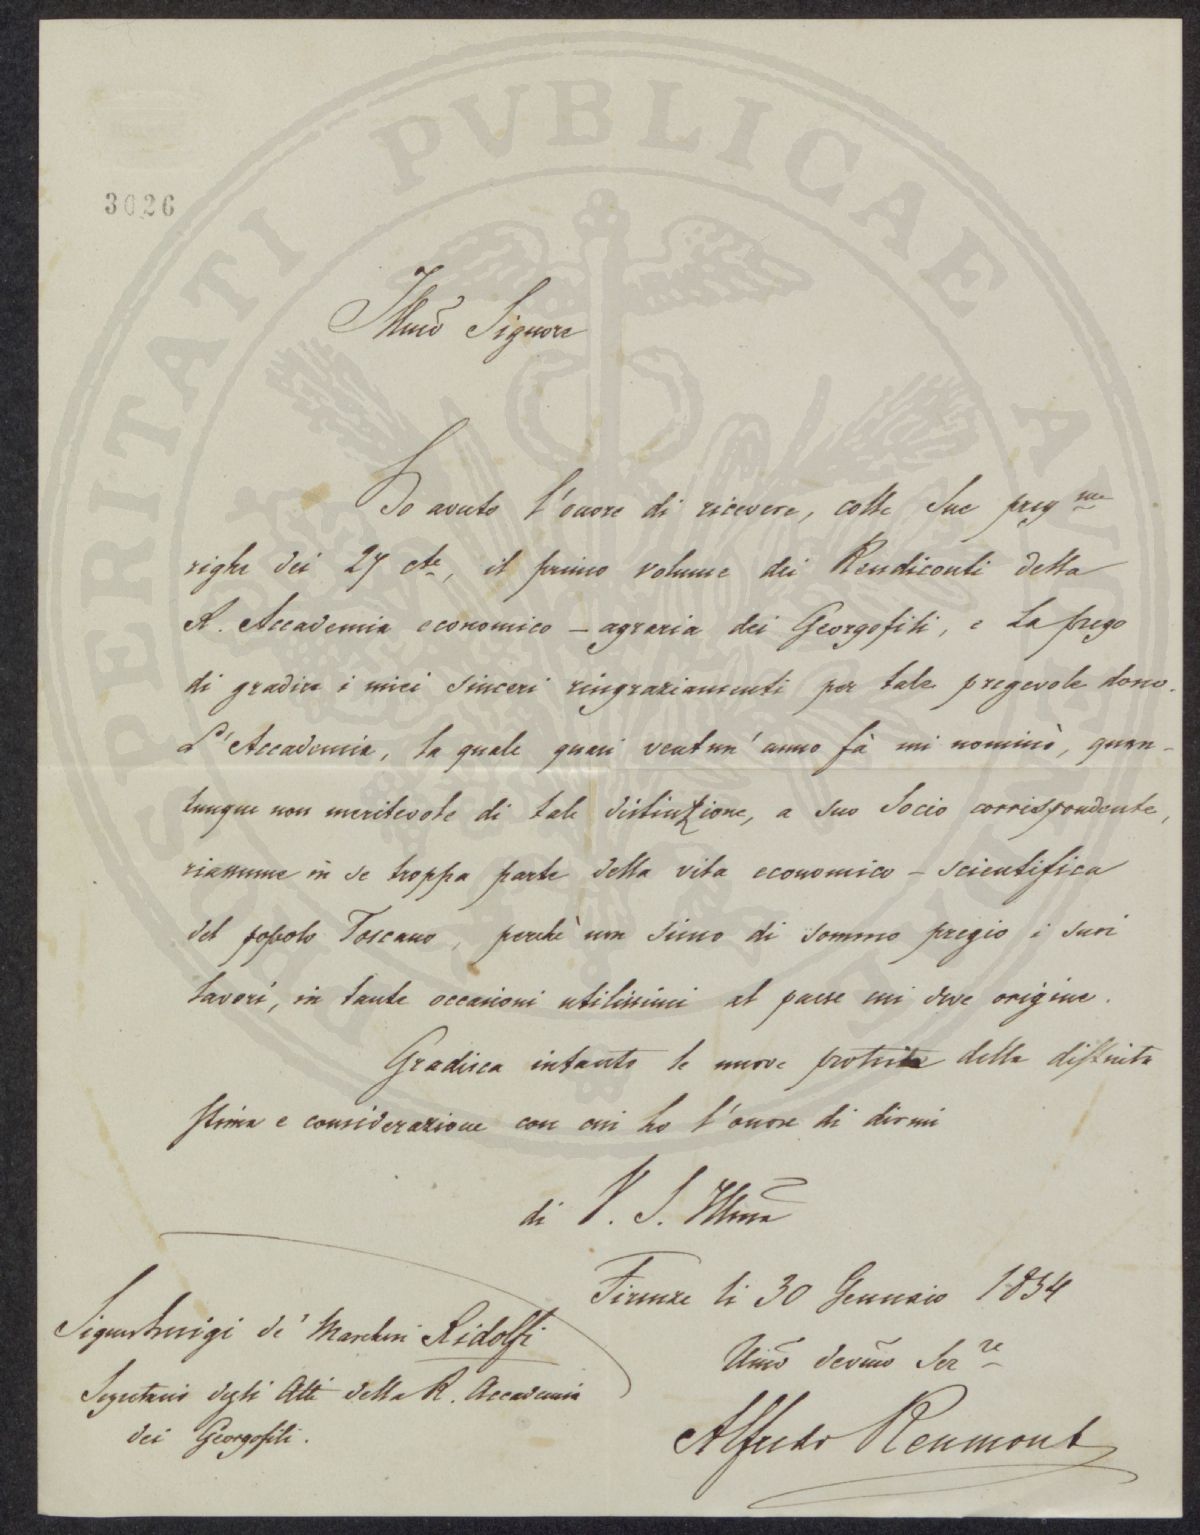 PROSPERITATI PVBLICAE AVGENDAE
3026
Illmo Signore
Ho avuto l'onore di ricevere, colle Sue preg.me
righe dei 27 cte, il primo volume dei Rendiconti della
R. Accademia economico – agraria dei Georgofili, e La prego
di gradire i miei sinceri ringraziamenti per tale pregevole dono.
L'Accademia, la quale quasi ventun' anno fà mi nominò, quan-
tunque non meritevole di tale distinzione, a suo Socio corrispondente,
riassume in se troppa parte della vita economico – scientifica
del popolo Toscano, perchè non siino di sommo pregio i suoi
lavori, in tante occasioni utilissimi al paese cui deve origine.
Gradisca intanto le nuove proteste della distinta
stima e considerazione con cui ho l'onore di dirmi
di V. S. Illma
Firenze li 30 Gennaio 1854
Umo devmo Serre
Alfredo Reumont
Signor Luigi de' Marchesi Ridolfi
Segretario degli Atti della R. Accademia
dei Georgofili.